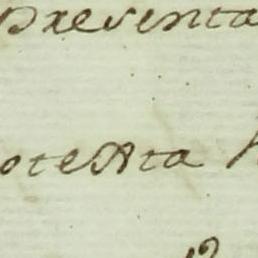 presenta
otesta